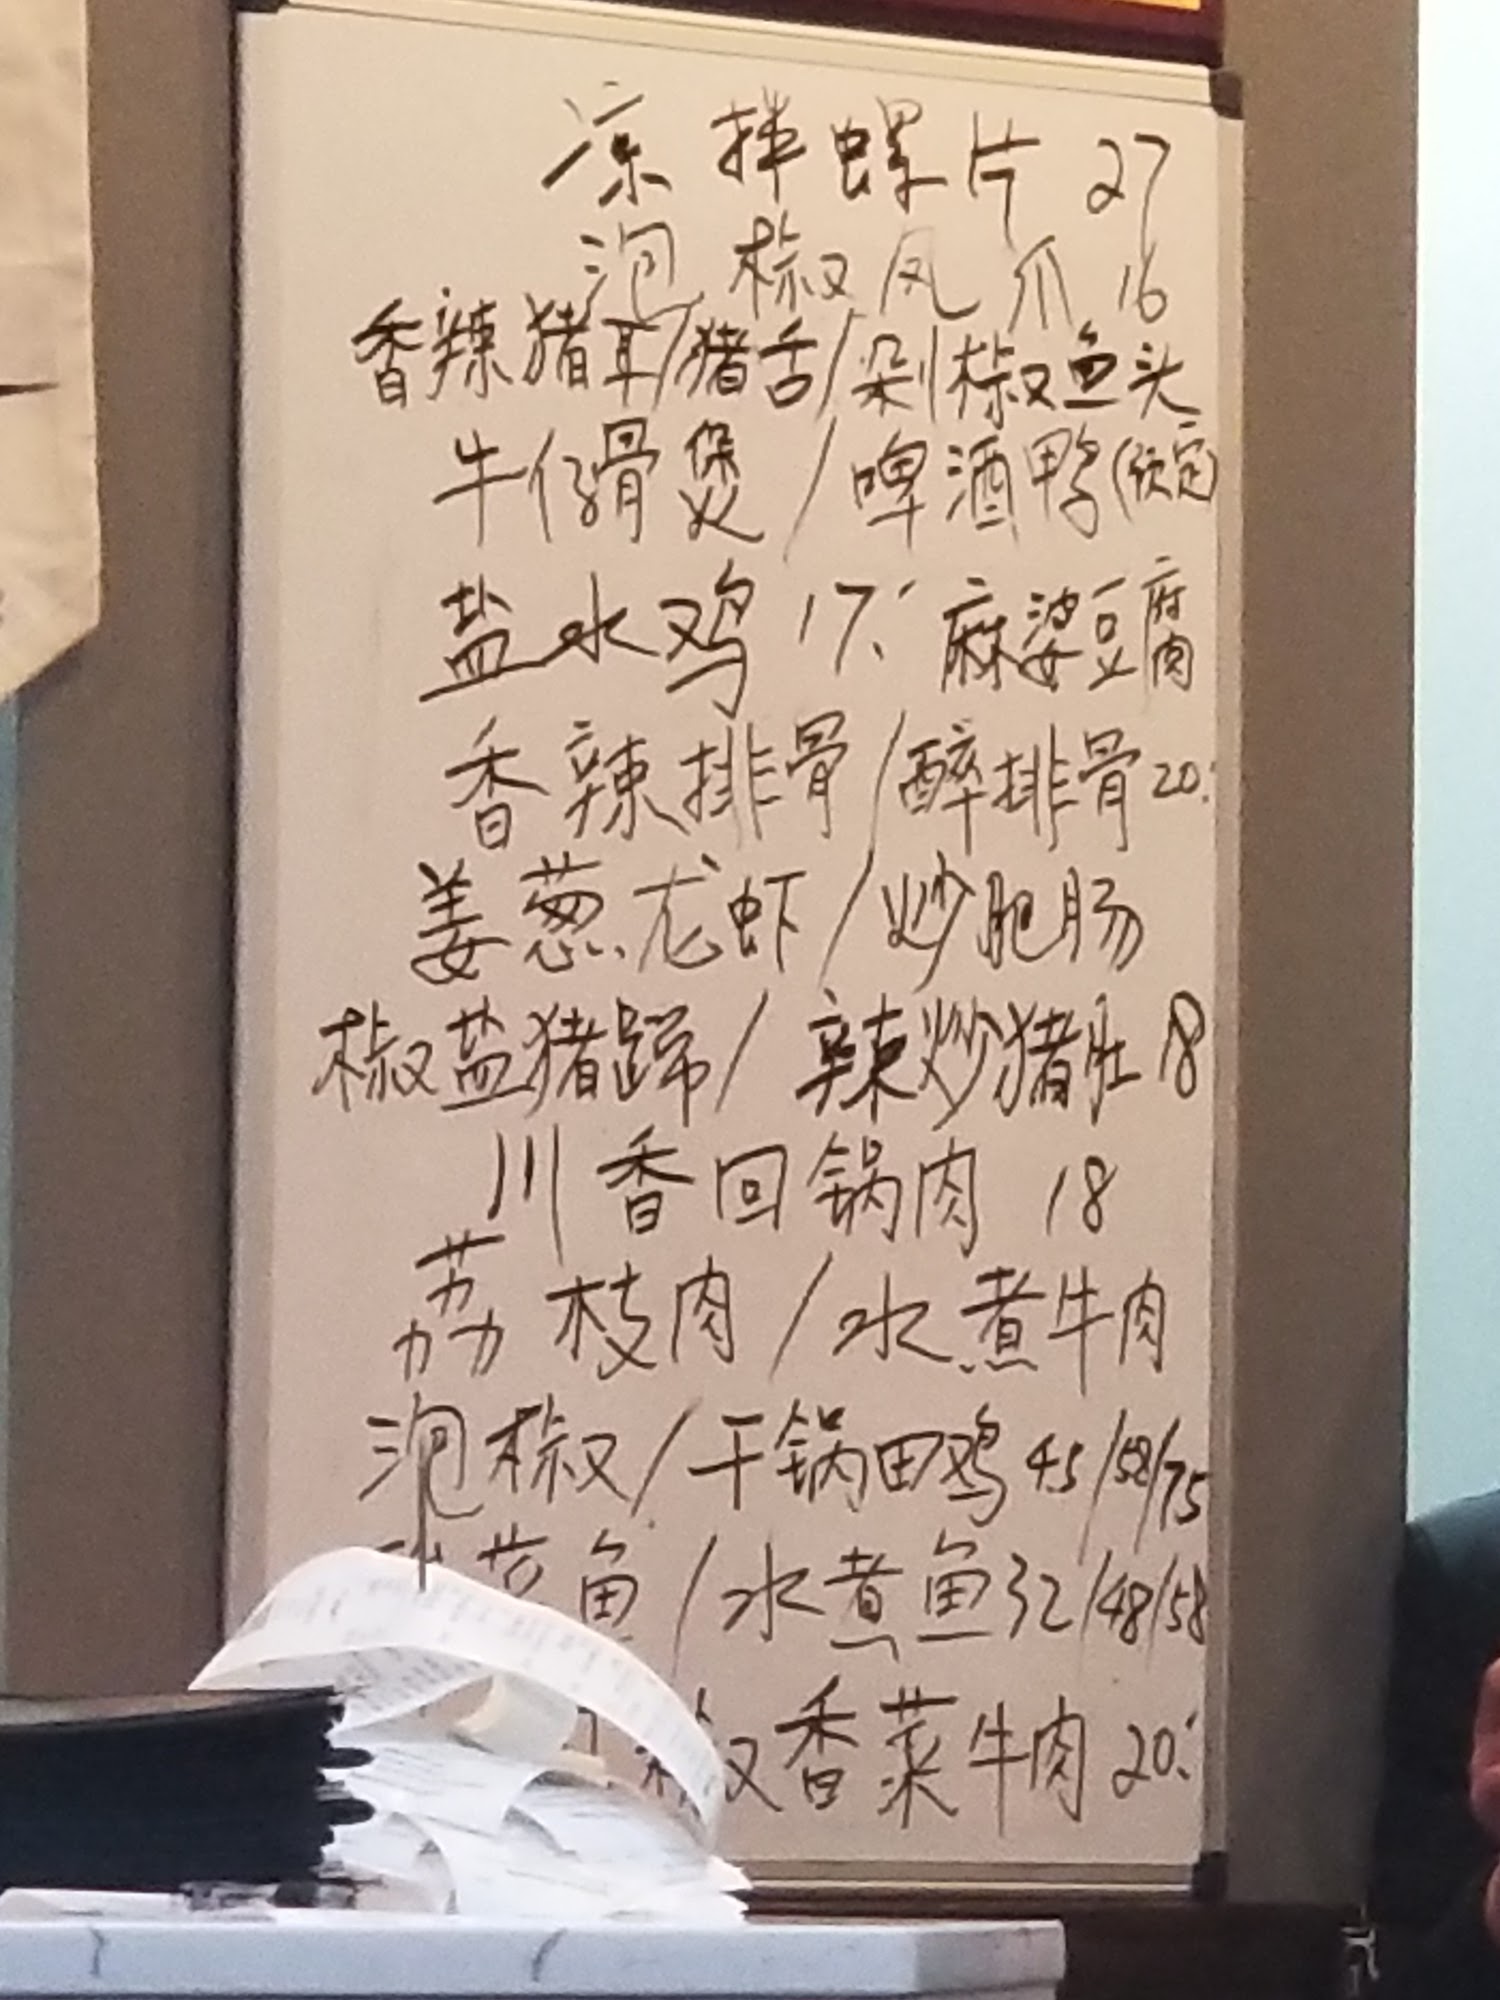 凉拌螺片 27
泡椒凤爪 16
香辣猪耳/猪舌/剁椒鱼头
牛仔骨煲/啤酒鸭(预定)
盐水鸡 17. 麻婆豆腐
香辣排骨/醉排骨20.
姜葱龙虾/炒肥肠
椒盐猪蹄/辣炒猪肚18
川香回锅肉 18
荔枝肉/水煮牛肉
泡椒/干锅田鸡 45/58/75
菜鱼/水煮鱼32/48/58
椒香菜牛肉 20.